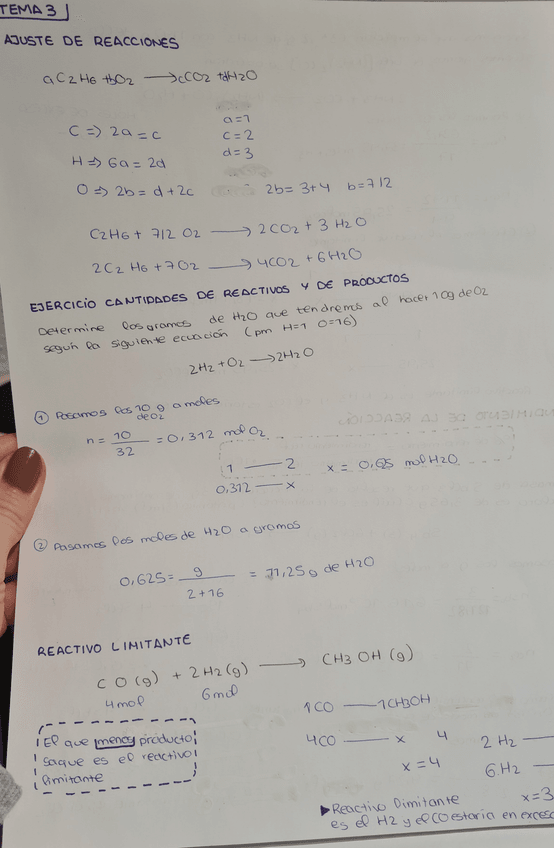 TEMA 3
AJUSTE DE REACCIONES
aC2H6 + bO2 ⟶ cCO2 + dH2O
C => 2a = c
a=1
c=2
d=3
H => 6a = 2d
O => 2b = d + 2c
2b = 3+4 b=7/2
C2H6 + 7/2 O2 ⟶ 2CO2 + 3 H2O
2C2H6 + 7O2 ⟶ 4CO2 + 6H2O
EJERCICIO CANTIDADES DE REACTIVOS Y DE PRODUCTOS
Determine los gramos de H2O que tendremos al hacer 10g de O2
según la siguiente ecuación (pm H=1 O=16)
2H2 + O2 ⟶ 2H2O
① Pasamos los 10 g a moles
de O2
n = 10/32 = 0,312 mol O2
1 — 2
0,312 — x
x = 0,65 mol H2O
② Pasamos los moles de H2O a gramos
0,625 = g/2+16 = 11,25g de H2O
REACTIVO LIMITANTE
CO (g) + 2H2(g) ⟶ CH3OH (g)
4mol 6mol
El que menos producto
saque es el reactivo
limitante
1CO — 1CH3OH
4CO — x 4
x = 4
2 H2 —
6 H2 —
x=3
▶Reactivo limitante
es el H2 y el CO estaria en exceso